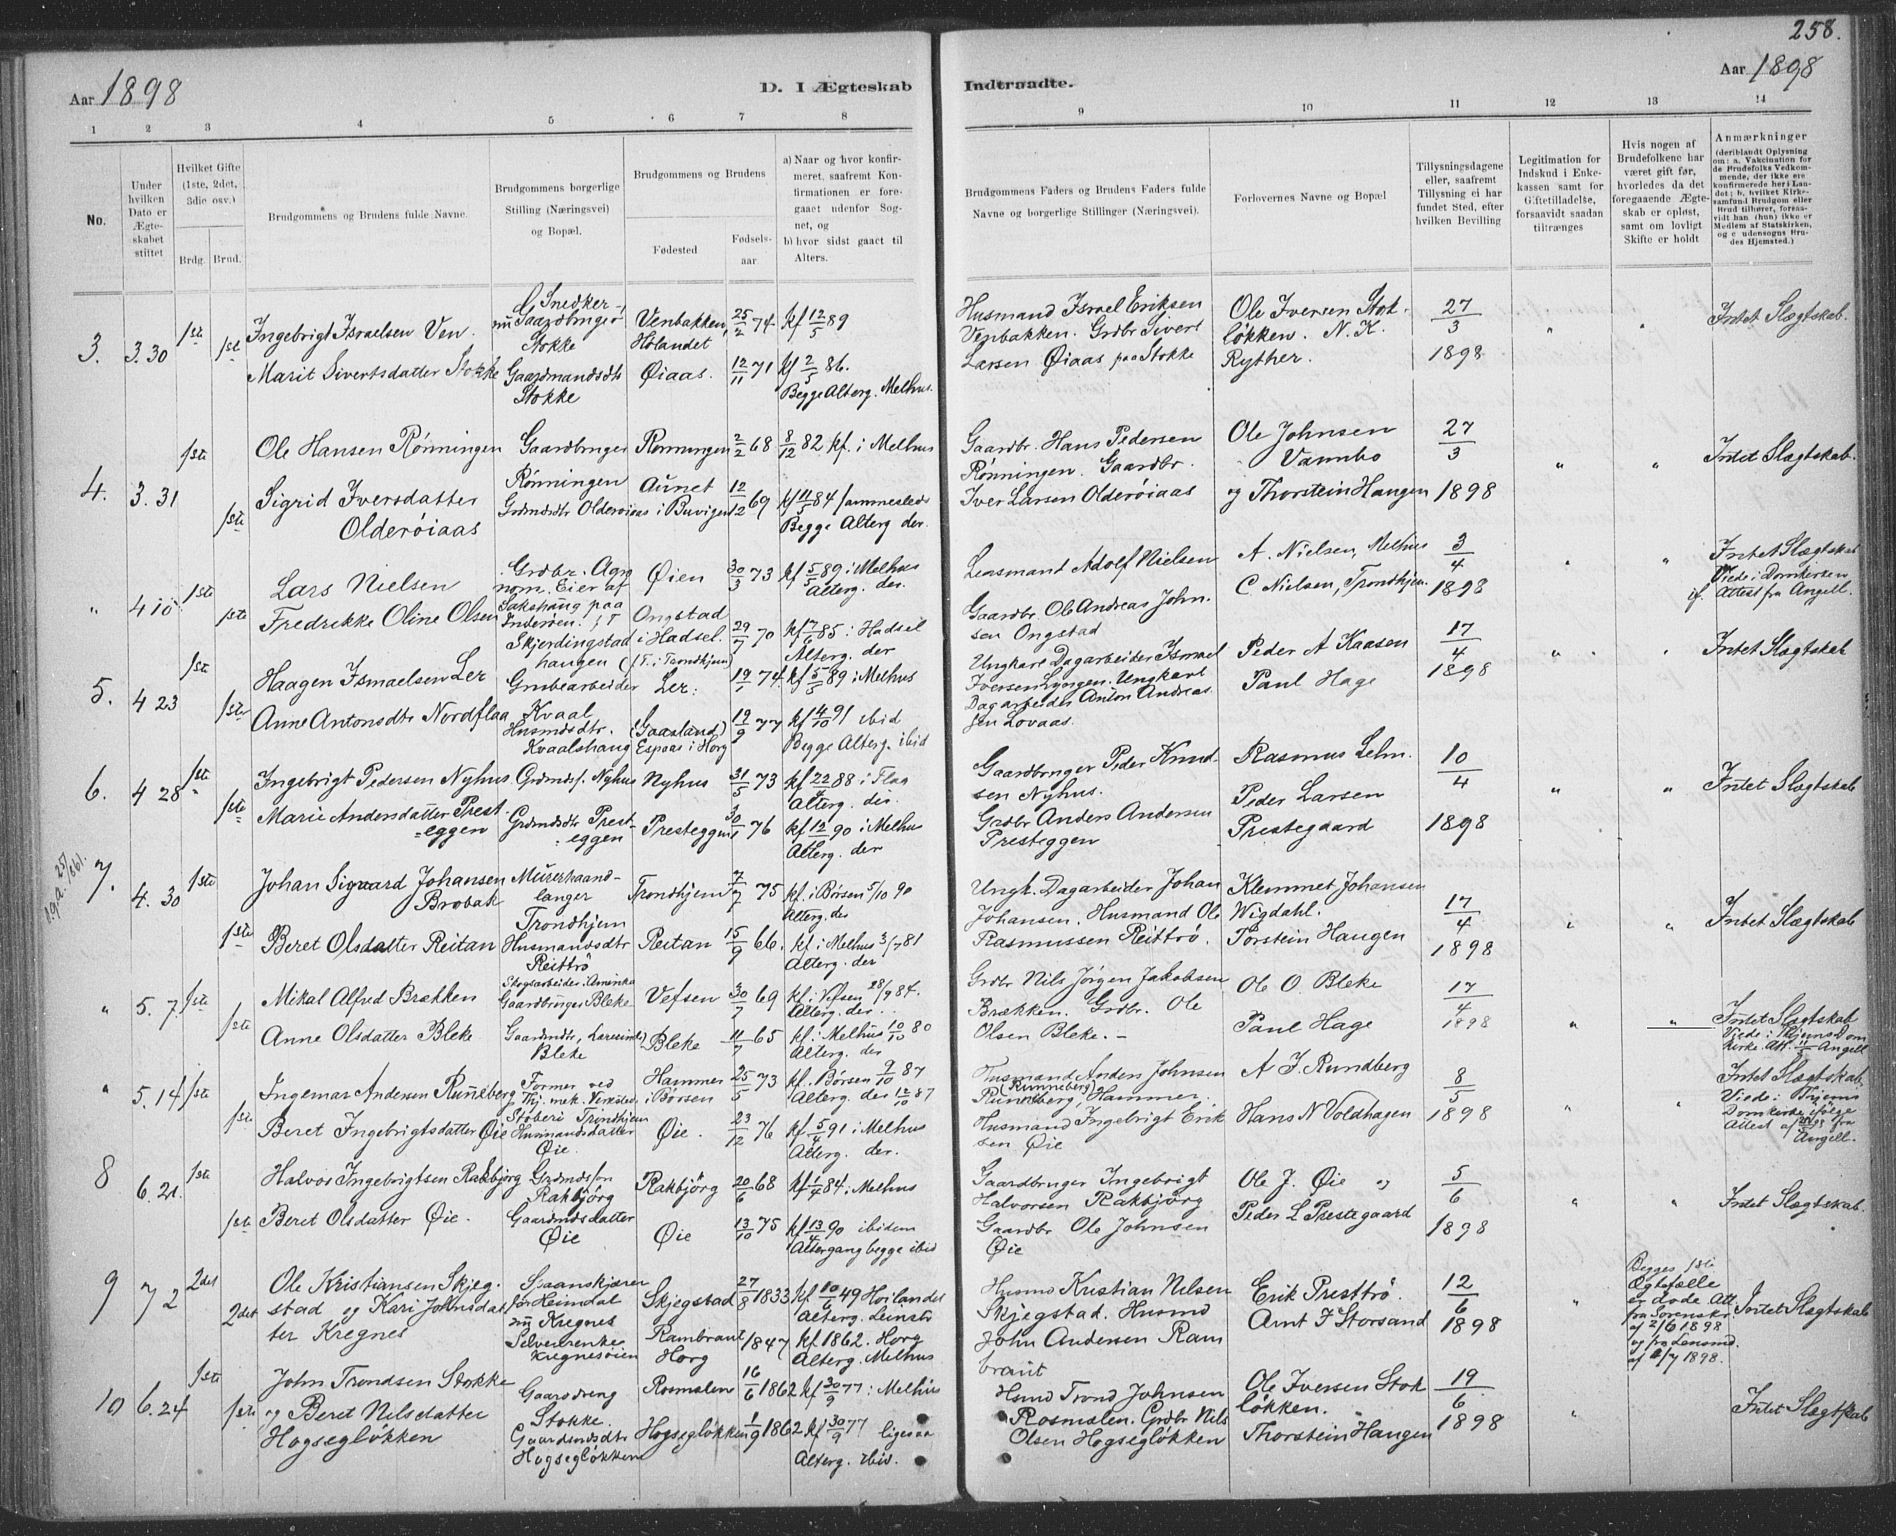 258.
Aar 1898
D. I Ægteskab
Indtraadte.
Aar 1898
1 2 3 4 5 6 7 8 9 10 11 12 13 14
No.
Under hvilken Dato er Ægteskabet stiftet
Hvilket Gifte (1ste, 2det, 3die osv.)
Brdg. Brud.
Brudgommens og Brudens fulde Navne.
Brudgommens borgerlige Stilling (Næringsvei) og Bopæl.
Brudgommens og Brudens
Fødested
Fødselsaar
a) Naar og hvor konfirmeret, saafremt Konfirmationen er foregaaet udenfor Sognet, og
b) hvor sidst gaaet til Alters.
Brudgommens Faders og Brudens Faders fulde Navne og borgerlige Stillinger (Næringsvei).
Forlovernes Navne og Bopæl
Tillysningsdagene eller, saafremt Tillysning ei har fundet Sted, efter hvilken Bevilling
Legitimation for Indskud i Enkekassen samt for Giftetilladelse, forsaavidt saadan tiltrænges
Hvis nogen af Brudefolkene har været gift før, hvorledes da det foregaaende Ægteskab er opløst, samt om lovligt Skifte er holdt
Anmærkninger
(deriblandt Oplysning om: a. Vakcination for de Brudefolks Vedkommende, der ikke ere konfirmerede her i Landet; b. hvilket Kirkesamfund Brudgom eller Brud tilhører, forsaavidt han (hun) ikke er Medlem af Statskirken, og c. udensogns Brudes Hjemsted.)
3. 3.30 1ste 1ste
Ingebrigt Israelsen Ven.
Marit Sivertsdatter Stokke
Snedker, nu Gaardbruger Stokke
Gaardmandsdtr Stokke
Venbakken, Hølandet 25/2 74 kf 12/5 89
Øiaas. 12/11 71 kf 2/5 86.
Begge Alterg. Melhus.
Husmand Israel Eriksen
Venbakken. Grdbr Sivert
Larsen Øiaas paa Stokke
Ole Iversen Stokløkken. N. K. Ryther.
27/3 1898
" " Intet Slægtskab.
4. 3.31 1ste 1ste
Ole Hansen Rønningen
Sigrid Iversdatter Olderøiaas
Gaardbruger Rønningen
Grdmdsdtr Olderøiaas
Rønningen 2/2 68 8/12 82 kf. i Melhus
Aunet i Buvigen 12/12 69 kf 11/5 84 sammesteds
Begge Alterg der.
Gaardbr. Hans Pedersen
Rønningen. Gaardbr.
Iver Larsen Olderøiaas
Ole Johnsen Vannbo
og Thorstein Haugen
27/3 1898
" " Intet Slægtskab.
" 4 10 1ste 1ste
Lars Nielsen
Fredrikke Oline Olsen
Grdbr. Agronom. Eier af
Sakshaug paa Inderøen.
Skjerdingstadhaugen (f. T. i Trondhjem)
Øien 30/3 73 kf 5/5 89 i Melhus
Alterg. der.
Ongstad i Hadsel. 29/7 70 kf 7/6 85 i Hadsel
Alterg. der
Lensmand Adolf Nielsen
Gaardbr Ole Andreas Johnsen Ongstad
A. Nielsen, Melhus
C Nielsen, Trondhjem
3/4 1898
" " Intet Slægtskab
Viede i Domkirken
if. Attest fra Angell.
5. 4 23 1ste 1ste
Haagen Ismaelsen Ler
Anne Antonsdtr Nordflaa
Grubearbeider Kvaal
Husmdsdtr. Kvaalshaug
Ler. 19/1 74 kf 5/5 89 i Melhus
(Gaasland) Espaas i Horg 19/9 77 kf 14/10 91 ibid
Begge Alterg. ibid
Ungkarl Dagarbeider Ismael
Iversen Lyngen. Ungkarl
Dagarbeider Anton Andreassen Lovaas.
Peder A Kaasen
Paul Hage
17/4 1898
" " Intet Slægtskab
6. 4 28 1ste 1ste
Ingebrigt Pedersen Nyhus
Marie Andersdatter Presteggen
Grdmds. Nyhus
Grdmdsdtr Presteggen
Nyhus 31/5 73 kf 22/4 88 i Flaa
Alterg. der
Presteggen 30/1 76 kf 12/10 90 i Melhus
Alterg. der
Gaardbruger Peder Knudsen Nyhus.
Grdbr Anders Andersen Presteggen
Rasmus Lelm.
Peder Larsen Prestegaard
10/4 1898
" " Intet Slægtskab
7. 4. 30 1ste 1ste
Johan Sigvard Johansen Brobak
Beret Olsdatter Reitan
Murerhaandlanger Trondhjem
Husmandsdtr Reittrø
Trondhjem 7/7 75 kf. i Børsen 5/10 90
Alterg. der
Reitan 15/9 66. kf. i Melhus 3/7 81
Alterg. der
Ungk. Dagarbeider Johan
Johansen. Husmand Ole
Rasmussen Reittrø.
Klemmet Johansen Wigdahl.
Torstein Haugen
17/4 1898
" " Intet Slægtskab
" 5. 7. 1ste 1ste
Mikal Alfred Brækken
Anne Olsdatter Bleke
Skogsarbeider. Amerika
Gaardbruger Bleke
Gaardmdsdtr, Bleke
Vefsen 30/7 69 kf. i Vefsen 28/9 84.
Alterg. der.
Bleke 11/7 65 kf. Melhus 10/10 80
Alterg. der
Grdbr Nils Jørgen Jakobsen
Brækken. Grdbr. Ole
Olsen Bleke. -
Ole O Bleke
Paul Hage
17/4 1898
" " Intet Slægtskab
Viede i Thjems Domkirke. Att. Angell
" 5.14 1ste 1ste
Ingemar Andersen Runeberg
Beret Ingebrigtsdatter Øie
Former ved Thj. mek. Verksted
Støberi Trondhjem
Husmandsdatter Øie.
Hammer i Børsen 25/5 73 kf. Børsen 9/10 87
Alterg. der 12/10 87
Øie. 23/12 76 kf 5/4 91 i Melhus
Alterg. der.
Husmand Anders Johnsen
(Runneberg)
Runeberg, Hammer.
Husmand Ingebrigt Eriksen Øie
A J. Rundberg
Hans N Voldhagen
8/5 1898
" " Intet Slægtskab.
Viede i Thjems
Domkirke ifølge
Attest af fra Angell.
8 6.21. 1ste 1ste
Halvor Ingebrigtsen Rakbjørg
Beret Olsdatter Øie.
Grdmdssøn Rakbjørg
Gaardmdsdatter Øie
Rakbjørg 20/6 68 kf 1/7 84 i Melhus
Øie 13/10 75 kf 13/4 90 ibidem
Altergang begge ibid
Gaardbruger Ingebrigt
Halvorsen Rakbjørg
Gaardbr Ole Johnsen Øie
Ole J. Øie og
Peder L Prestegaard
5/6 1898
" " Intet Slægtskab.
9 7 2 2det 2det
Ole Kristiansen Skjegstad og Kari Johnsdatter Kregnes
Spaanskjærer før Heimdal nu Kregnes
Selveierenke Kregnesøien
Skjegstad 27/8 1833 kf 10/6 49 Høilandet
Alterg. Leinstr
Rambraut Horg 1847 kf 1862. Horg
Alterg. Melhus
Husmd Kristian Nilsen
Skjegstad. Husmd
John Andersen Rambraut
Erik Presttrø.
Arnt J Storsand
12/6 1898
"
Begges 1ste
Ægtefælle
er døde Att
fra Sorenskr.
af 2/6 1898
og fra Lensmd.
af 2/7 1898.
Intet Slægtskab
10 6.24 1ste 1ste
John Trondsen Stokke
og Beret Nilsdatter
Hogsegløkken
Gaardreng Stokke.
Gaardmdsdtr Hogsegløkken
Rosmælen 16/6 1862 kf 30/9 77 i Melhus
Hogsegløkken 1/9 1862 kf 30/9 77 ligesaa
Alterg. ibid.
Hsmd Trond Johnsen
Rosmælen. Grdbr Nils
Olsen Hogsegløkken
Ole Iversen Stokløkken.
Thorstein Haugen
19/6 1898
" Intet Slægtskab